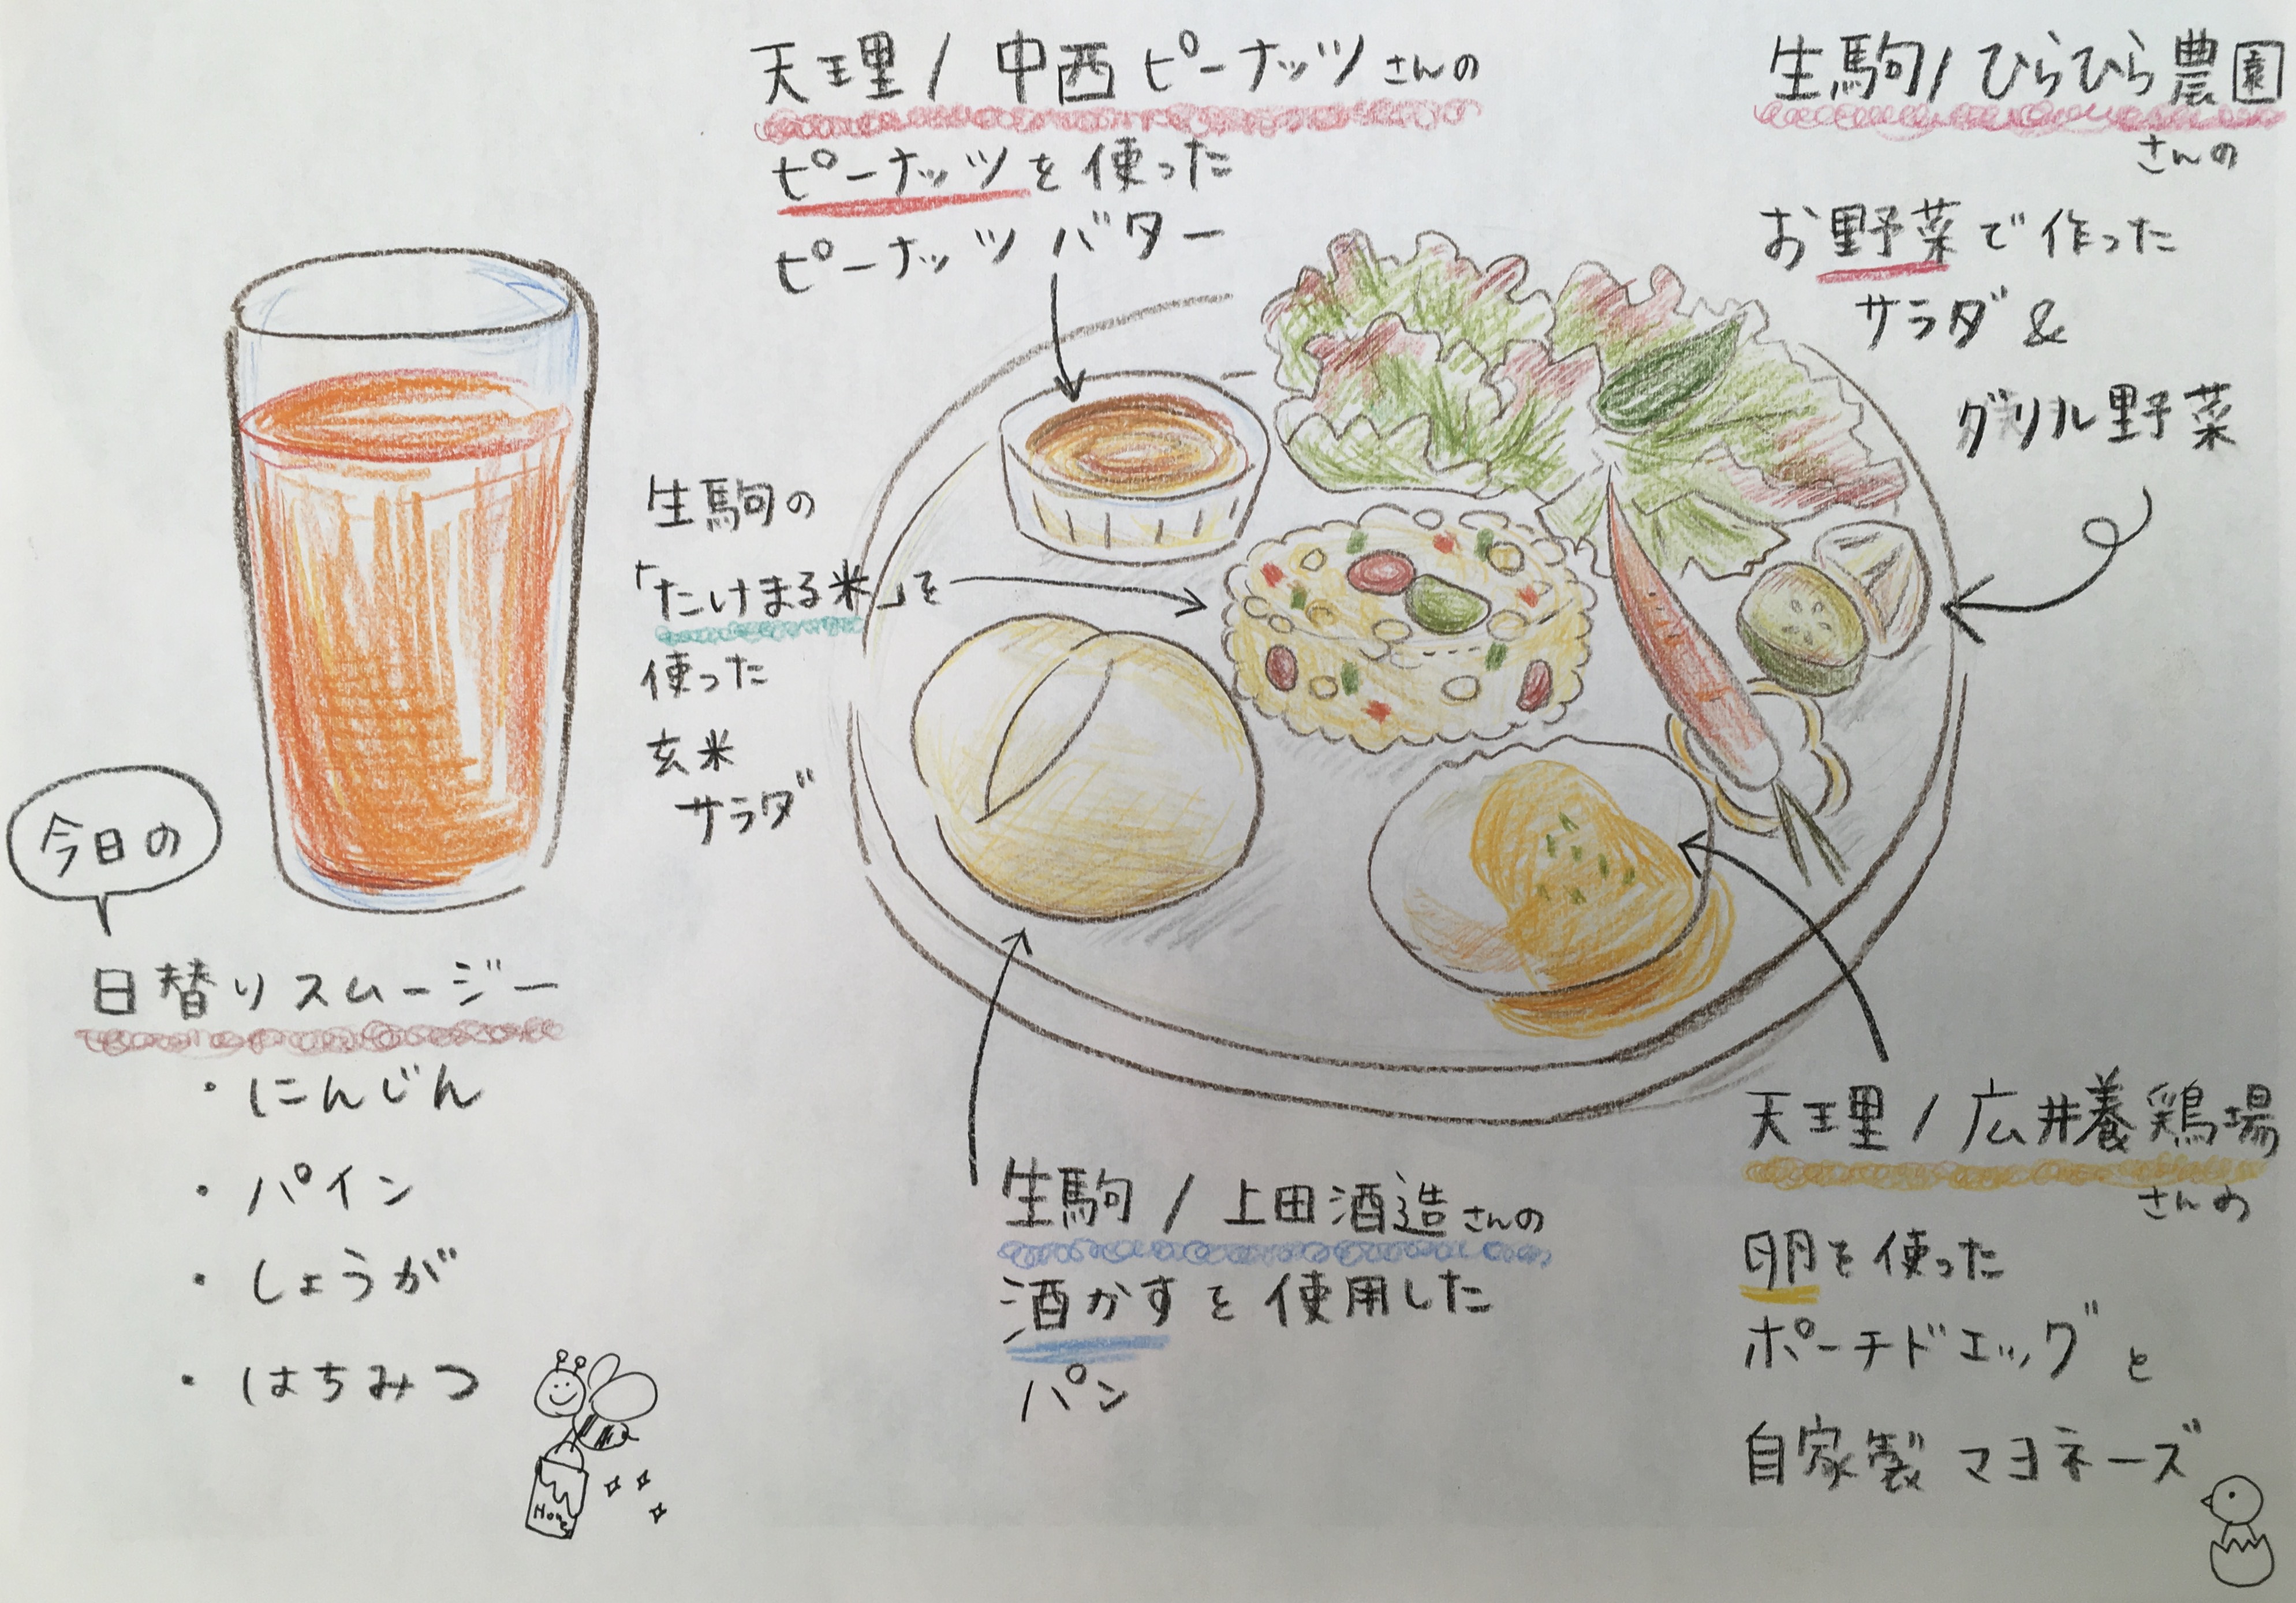 天理/中西ピーナッツさんの
ピーナッツを使った
ピーナッツバター
生駒/ひらひら農園
さんの
お野菜で作った
サラダ&
グリル野菜
生駒の
「たけまる米」を
使った
玄米
サラダ
今日の
日替りスムージー
・にんじん
・パイン
・しょうが
・はちみつ
生駒/上田酒造さんの
酒かすを使用した
パン
天理/広井養鶏場
さんの
卵を使った
ポーチドエッグと
自家製マヨネーズ